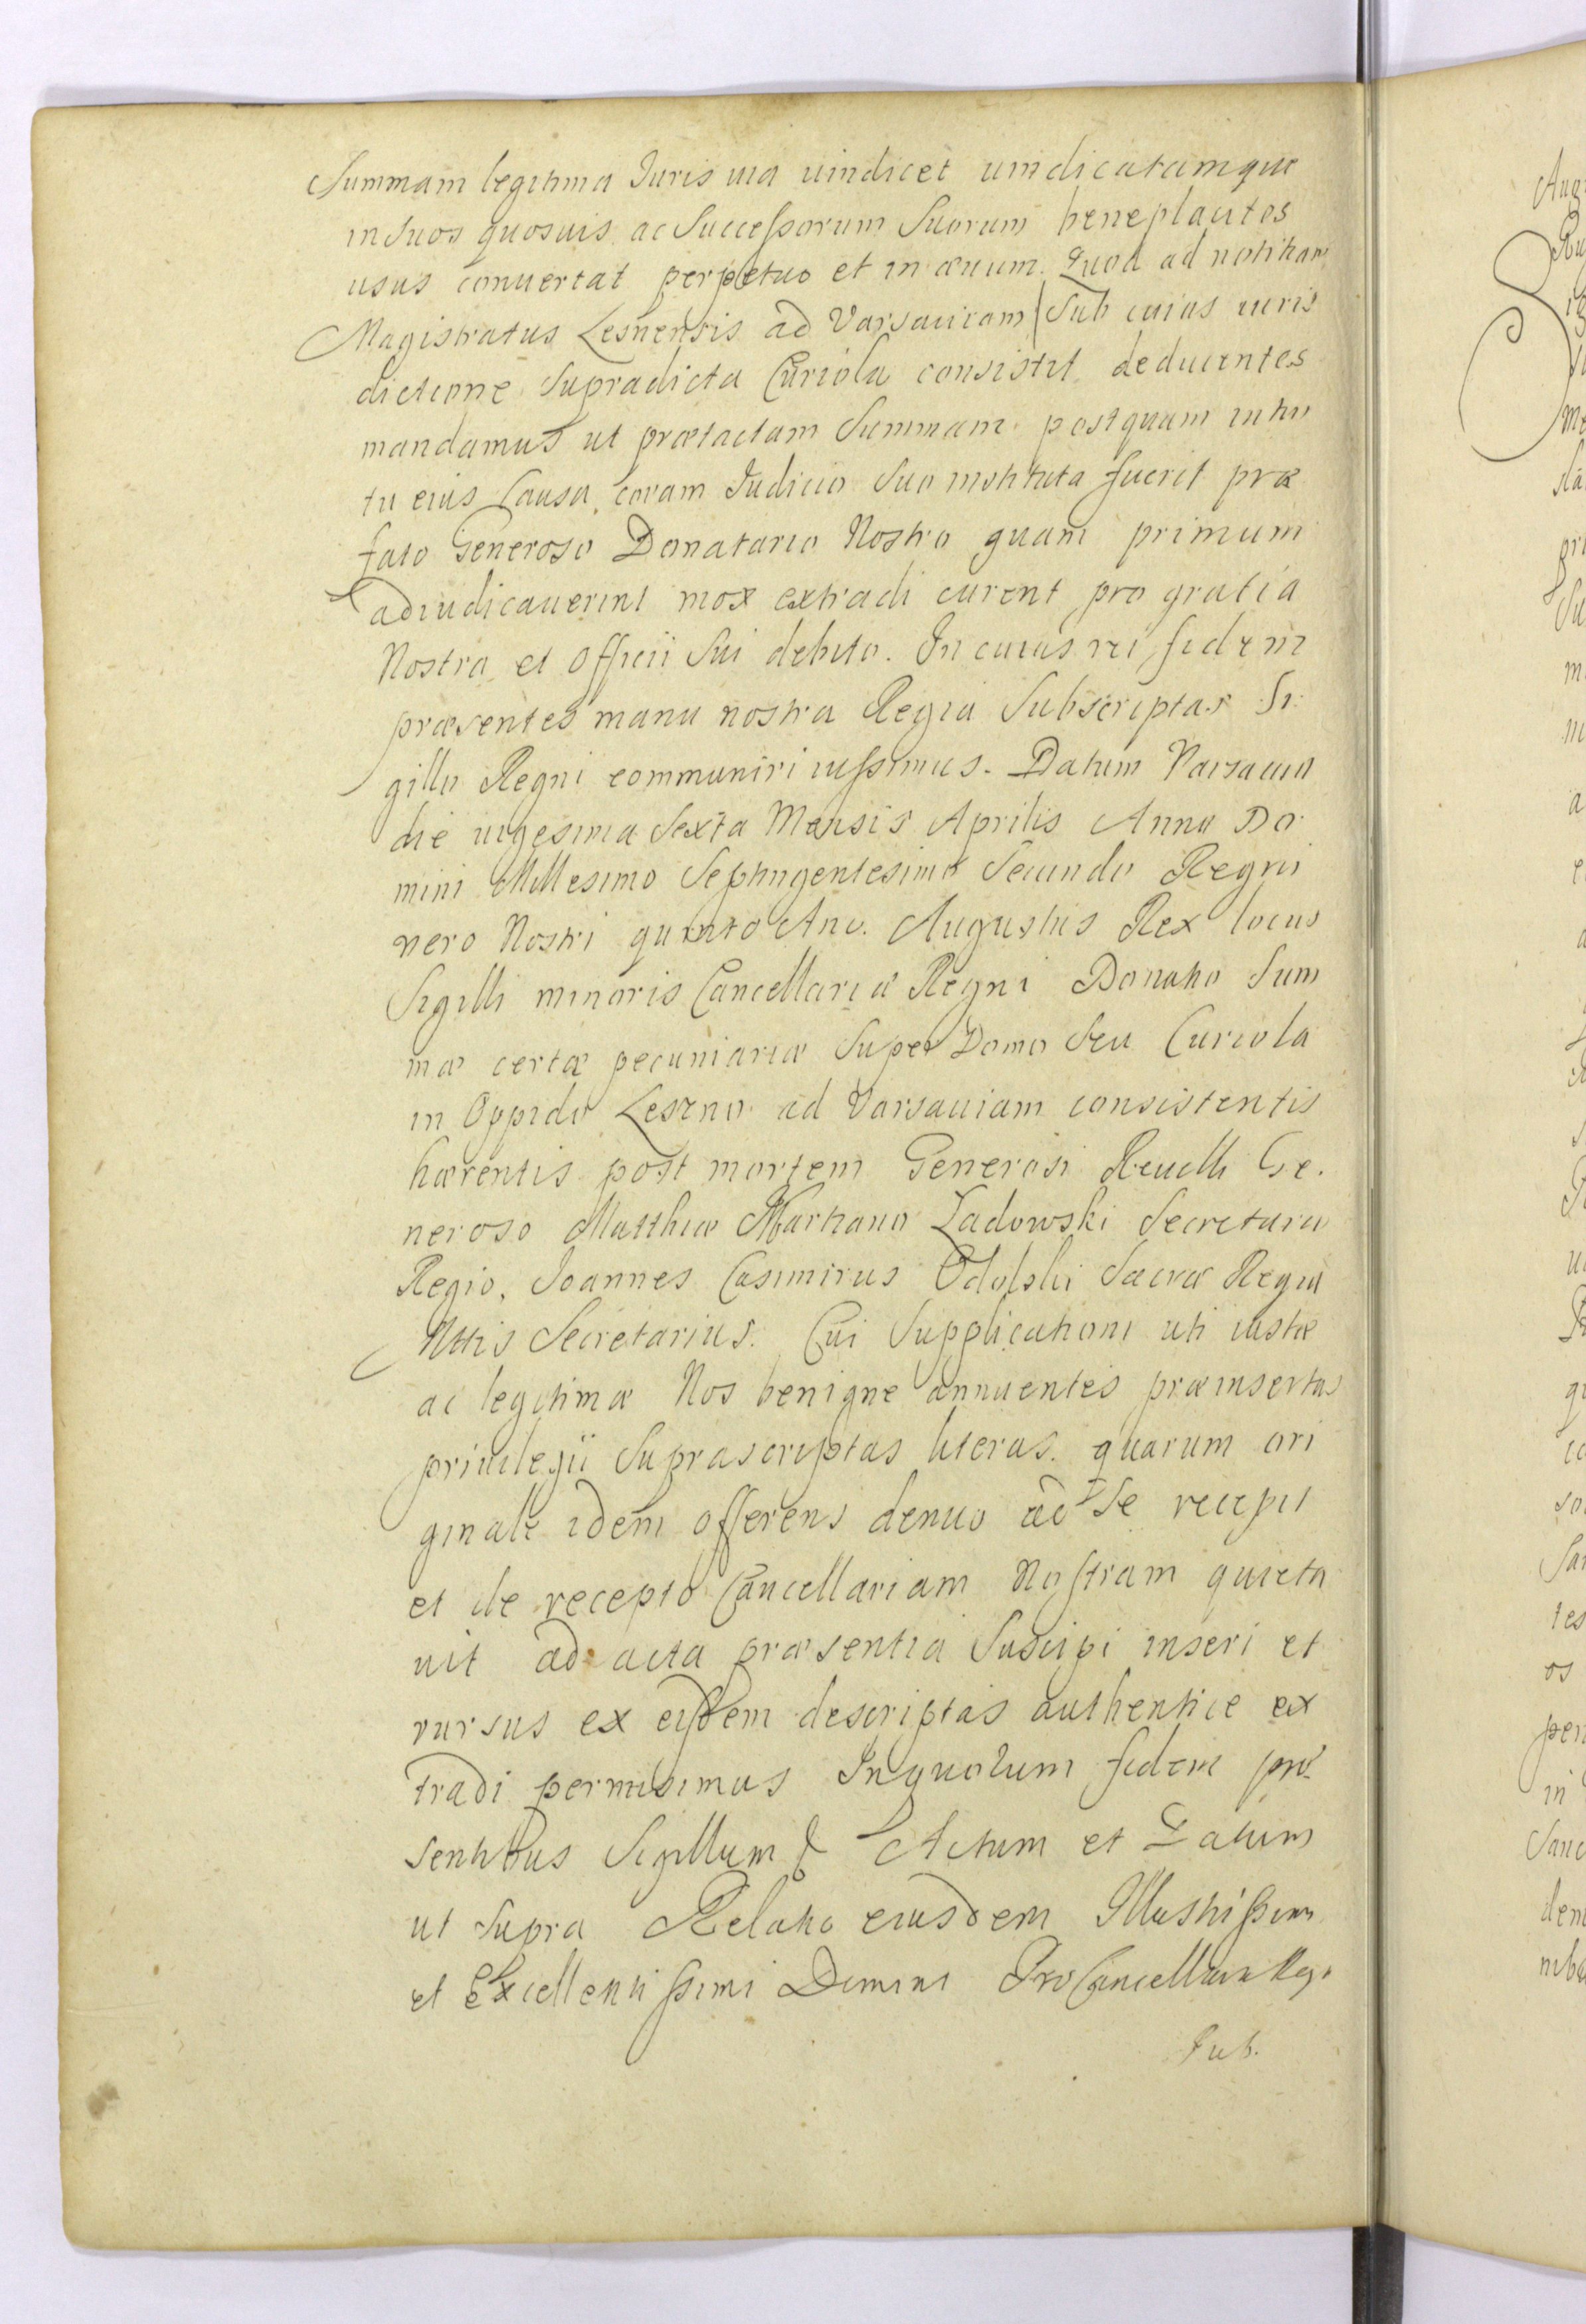 Summam legitima Iuris uia uindicet uindicatamque
in suos quosuis ac Successorum Suorum beneplacitos
usus conuertat perpetuo et in æuum. Quod ad notitiam
Magistratus Lesnensis ad Varsauiam Sub cuius iuris
dictione Supradicta Curiola consistit deducentes
mandamus ut prætactam Summam postquam intui
tu eius Causa coram Iudicio Suo instituta fuerit præ
fato Generoso Donatario Nostro quam primum
adiudicauerint mox extradi curent pro gratia
Nostra et Officii Sui debito. In cuius rei fidem
præsentes manu nostra Regia Subscriptas Si
gillo Regni communiri iussimus. Datum Varsauiæ
die uigesima Sexta Mensis Aprilis Anno Do
mini Millesimo Septingentesimo Secundo Regni
uero Nostri quinto Ano. Augustus Rex locus
Sigilli minoris Cancellariæ Regni Donatio Sum
mæ certæ pecuniariæ Super Domo Seu Curiola
in Oppido Leszno ad Varsauiam consistentis
hærentis post mortem Generosi Reuelli Ge.
neroso Matthiæ Martiano Ladowski Secretario
Regio. Joannes Casimirus Odolski Sacræ Regiæ
Mttis Secretarius. Cui Supplicationi uti iustæ
ac legitimæ Nos benigne annuentes præinsertas
priuilegii Suprascriptas literas. quarum ori
ginale idem offerens denuo ad Se recepit
et de recepto Cancellariam Nostram quieta
uit ad acta præsentia Suscipi inseri et
rursus ex eisdem descriptas authentice ex
tradi permisimus In quorum fidem præ
sentibus Sigillum & Actum et Datum
ut Supra Relatio eiusdem Illustrissimi
et Excellentissimi Domini ProCancellarii Regni